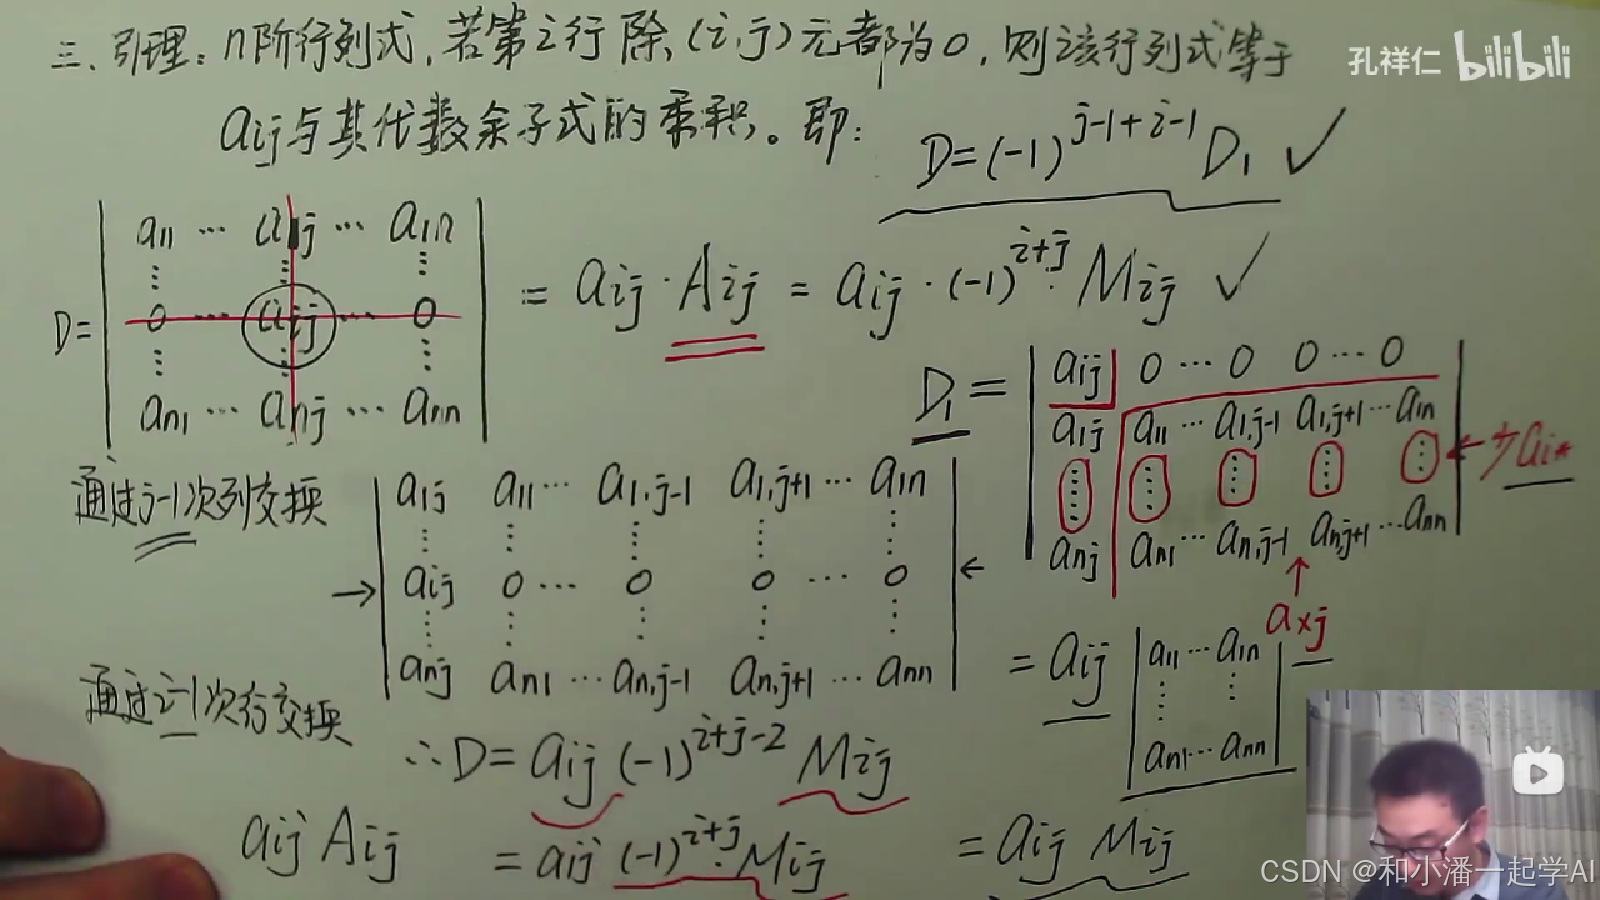 三、引理：n阶行列式，若第i行除(i,j)元都为0，则该行列式等于
孔祥仁 bilibili
aij与其代数余子式的乘积。即：
D=(-1)^{j-1+i-1} D₁ ✓
D=
a11 … a1j … a1n
⋮ ⋮ ⋮
0 … aij … 0
⋮ ⋮ ⋮
an1 … anj … ann
= aij · Aij = aij · (-1)^{i+j} Mij ✓
D₁ =
aij 0 … 0 0 … 0
a1j a11 … a1,j-1 a1,j+1 … a1n
⋮ ⋮ ⋮ ⋮ ⋮ ← 少ai*
anj an1 … an,j-1 an,j+1 … ann
↑
a×j
= aij
a11 … a1n
⋮ ⋮
an1 … ann
= aij Mij
通过j-1次列交换
→
a1j a11 … a1,j-1 a1,j+1 … a1n
⋮ ⋮ ⋮ ⋮ ⋮
aij 0 … 0 0 … 0 ←
⋮ ⋮ ⋮ ⋮ ⋮
anj an1 … an,j-1 an,j+1 … ann
通过i-1次行交换
∴D= aij (-1)^{i+j-2} Mij
aij Aij = aij (-1)^{i+j} · Mij
CSDN @和小潘一起学AI